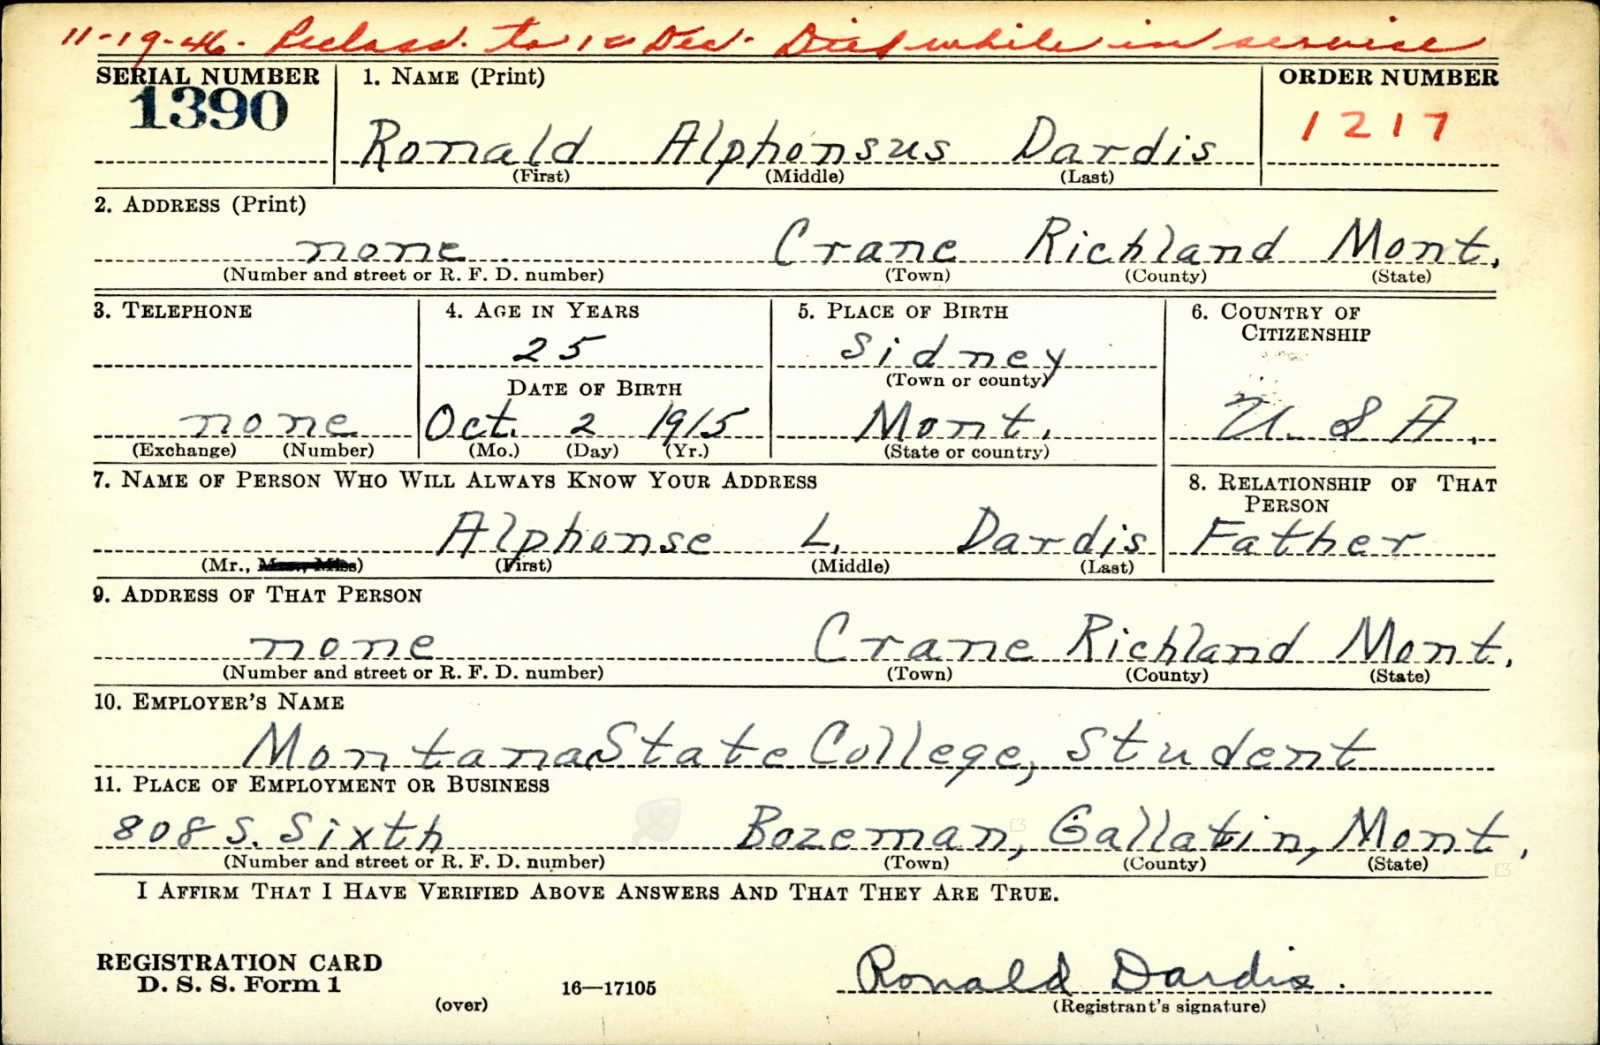 11-19-46. Reclass. to 1c Dec. Died while in service
SERIAL NUMBER 1. NAME (Print) ORDER NUMBER
1390 Ronald Alphonsus Dardis 1217
(First) (Middle) (Last)
2. ADDRESS (Print)
none Crane Richland Mont.
(Number and street or R. F. D. number) (Town) (County) (State)
3. TELEPHONE 4. AGE IN YEARS 5. PLACE OF BIRTH 6. COUNTRY OF CITIZENSHIP
25 Sidney
DATE OF BIRTH (Town or county)
none Oct. 2 1915 Mont. U. S A.
(Exchange) (Number) (Mo.) (Day) (Yr.) (State or country)
7. NAME OF PERSON WHO WILL ALWAYS KNOW YOUR ADDRESS 8. RELATIONSHIP OF THAT PERSON
Alphonse L. Dardis Father
(Mr., Mrs., Miss) (First) (Middle) (Last)
9. ADDRESS OF THAT PERSON
none Crane Richland Mont.
(Number and street or R. F. D. number) (Town) (County) (State)
10. EMPLOYER'S NAME
Montana State College, Student
11. PLACE OF EMPLOYMENT OR BUSINESS
808 S. Sixth Bozeman, Gallatin, Mont.
(Number and street or R. F. D. number) (Town) (County) (State)
I AFFIRM THAT I HAVE VERIFIED ABOVE ANSWERS AND THAT THEY ARE TRUE.
REGISTRATION CARD Ronald Dardis.
D. S. S. Form 1 (over) 16—17105 (Registrant's signature)